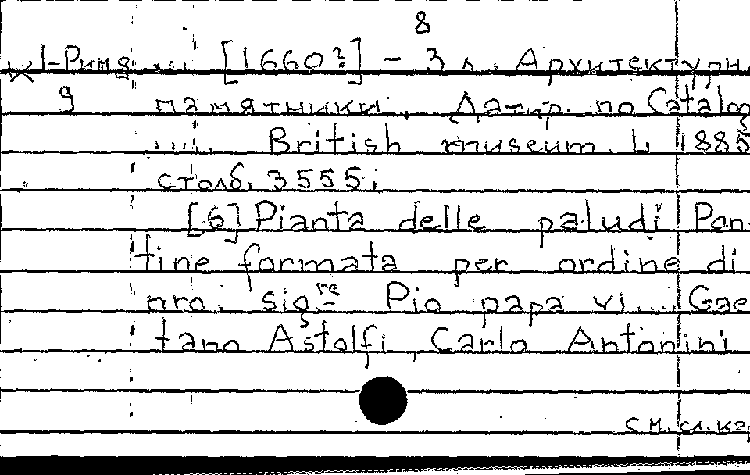 8
1-Рим ... [1660?] - 3 л. Архитектурн
9 памятники. Датир. по Catalog
... British museum. L 1885
столб. 3555;
[6] Pianta delle paludi Pon-
tine formata per ordine di
nro. sigre Pio papa VI... Gae
tano Astolfi, Carlo Antonini
см. сл. кар